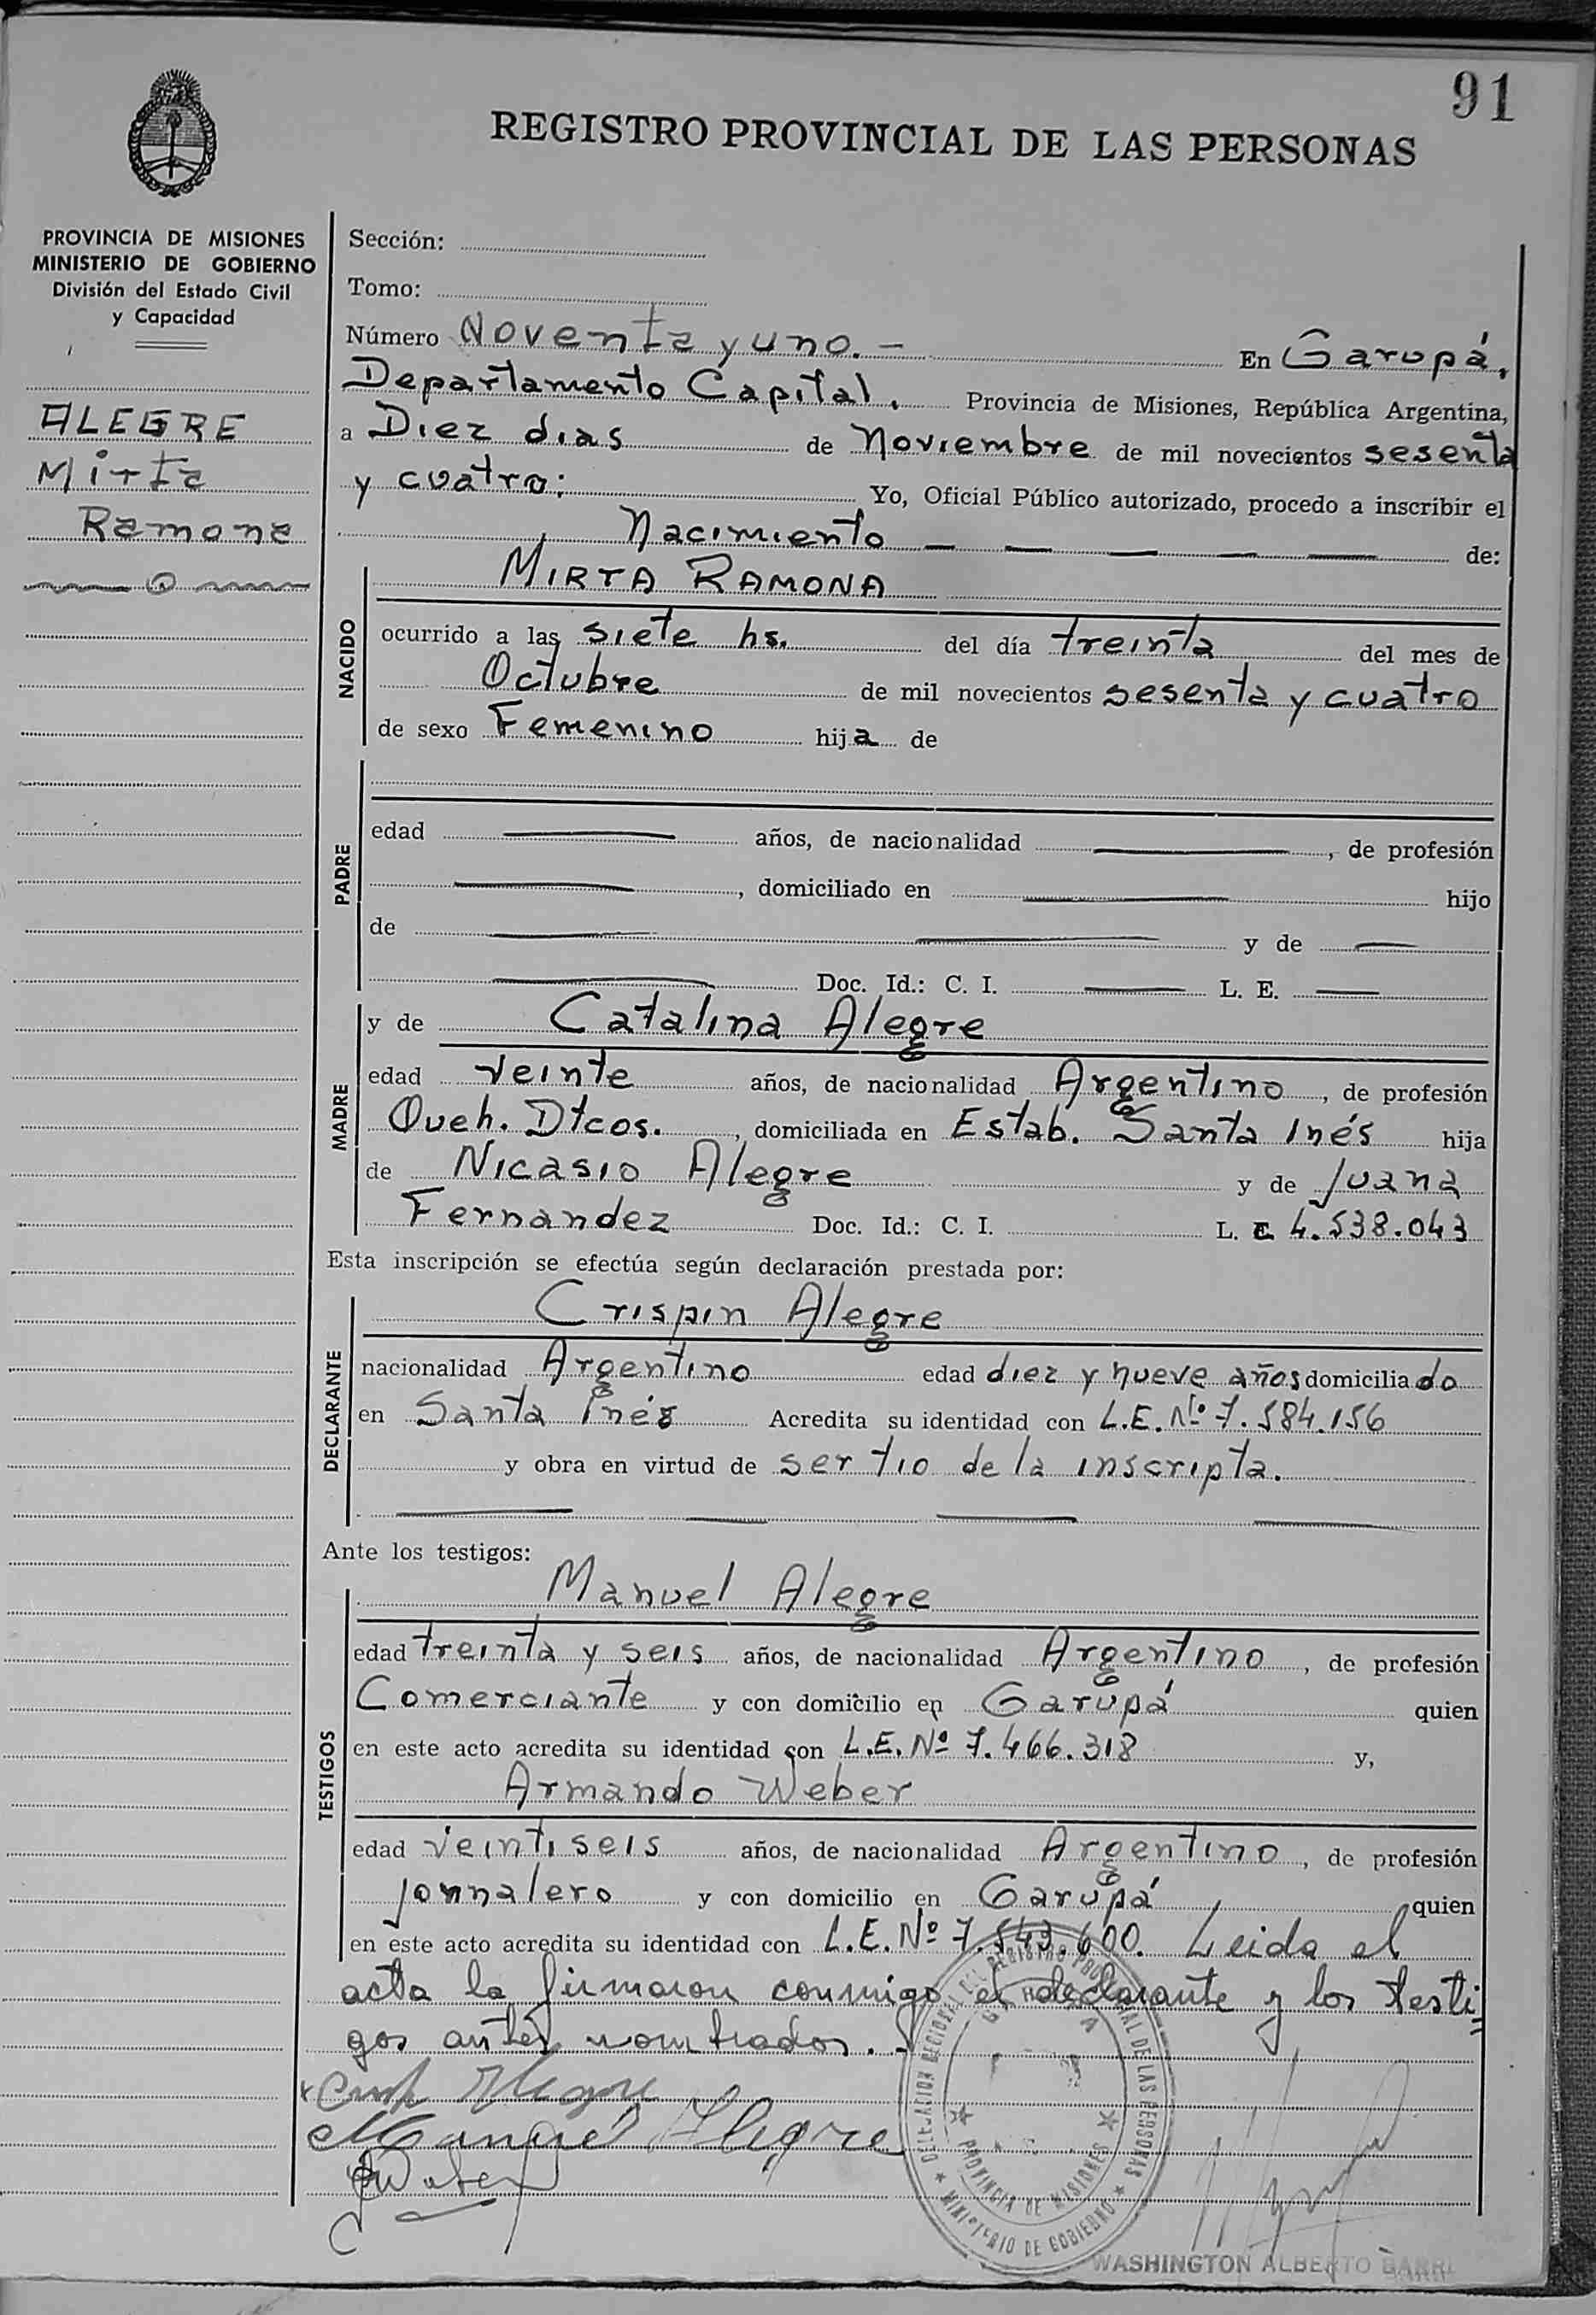 91
REGISTRO PROVINCIAL DE LAS PERSONAS
PROVINCIA DE MISIONES
MINISTERIO DE GOBIERNO
División del Estado Civil
y Capacidad
ALEGRE
Mirta
Ramona
Sección:
Tomo:
Número Noventa y uno. — En Garupá,
Departamento Capital, Provincia de Misiones, República Argentina,
a Diez dias de Noviembre de mil novecientos sesenta
y cuatro; Yo, Oficial Público autorizado, procedo a inscribir el
Nacimiento — — — — — de:
NACIDO
MIRTA RAMONA
ocurrido a las siete hs. del día treinta del mes de
Octubre de mil novecientos sesenta y cuatro
de sexo Femenino hija de
PADRE
edad — años, de nacionalidad —, de profesión
—, domiciliado en — hijo
de — — y de —
— Doc. Id.: C. I. — L. E. —
MADRE
y de Catalina Alegre
edad veinte años, de nacionalidad Argentino, de profesión
Queh. Dtcos., domiciliada en Estab. Santa Inés hija
de Nicasio Alegre y de Juana
Fernandez Doc. Id.: C. I. L. C. 4.538.043
Esta inscripción se efectúa según declaración prestada por:
DECLARANTE
Crispin Alegre
nacionalidad Argentino edad diez y nueve años domiciliado
en Santa Inés Acredita su identidad con L.E. Nº 7.584.156
y obra en virtud de ser tio de la inscripta.
— — — —
Ante los testigos:
TESTIGOS
Manuel Alegre
edad treinta y seis años, de nacionalidad Argentino, de profesión
Comerciante y con domicilio en Garupá quien
en este acto acredita su identidad con L.E. Nº 7.466.318 y,
Armando Weber
edad veintiseis años, de nacionalidad Argentino, de profesión
jornalero y con domicilio en Garupá quien
en este acto acredita su identidad con L.E. Nº 7.543.600. Leida el
acta la firmaron conmigo el declarante y los testi
gos antes nombrados. -
Crisp Alegre
Manuel Alegre
Weber
REGISTRO PROVINCIAL DE LAS PERSONAS
PROVINCIA DE MISIONES
MINISTERIO DE GOBIERNO
WASHINGTON ALBERTO